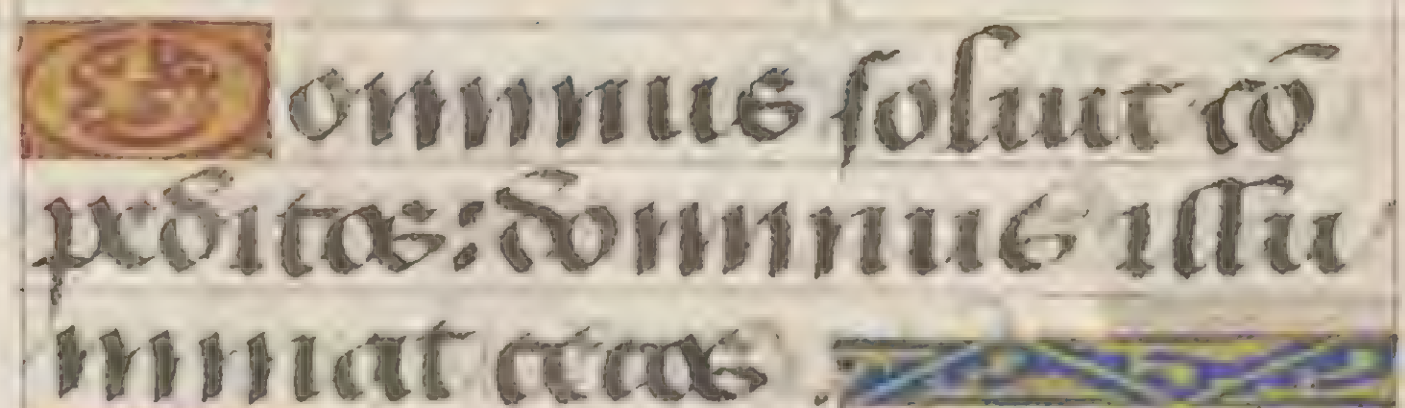 Dominus ſoluit cō
peditos: dominus illu
minat cecos.